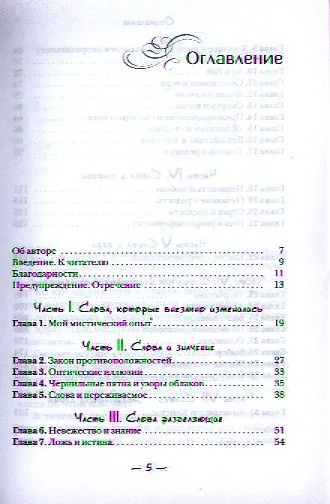 Оглавление
Об авторе 7
Введение. К читателю 9
Благодарности 11
Предупреждение. Отречение 13
Часть I. Слова, которые внезапно изменились
Глава 1. Мой мистический опыт 19
Часть II. Слова и значение
Глава 2. Закон противоположностей 27
Глава 3. Оптические иллюзии 33
Глава 4. Чернильные пятна и узоры облаков 35
Глава 5. Слова и переживаемое 38
Часть III. Слова разделяющие
Глава 6. Невежество и знание 51
Глава 7. Ложь и истина 54
— 5 —